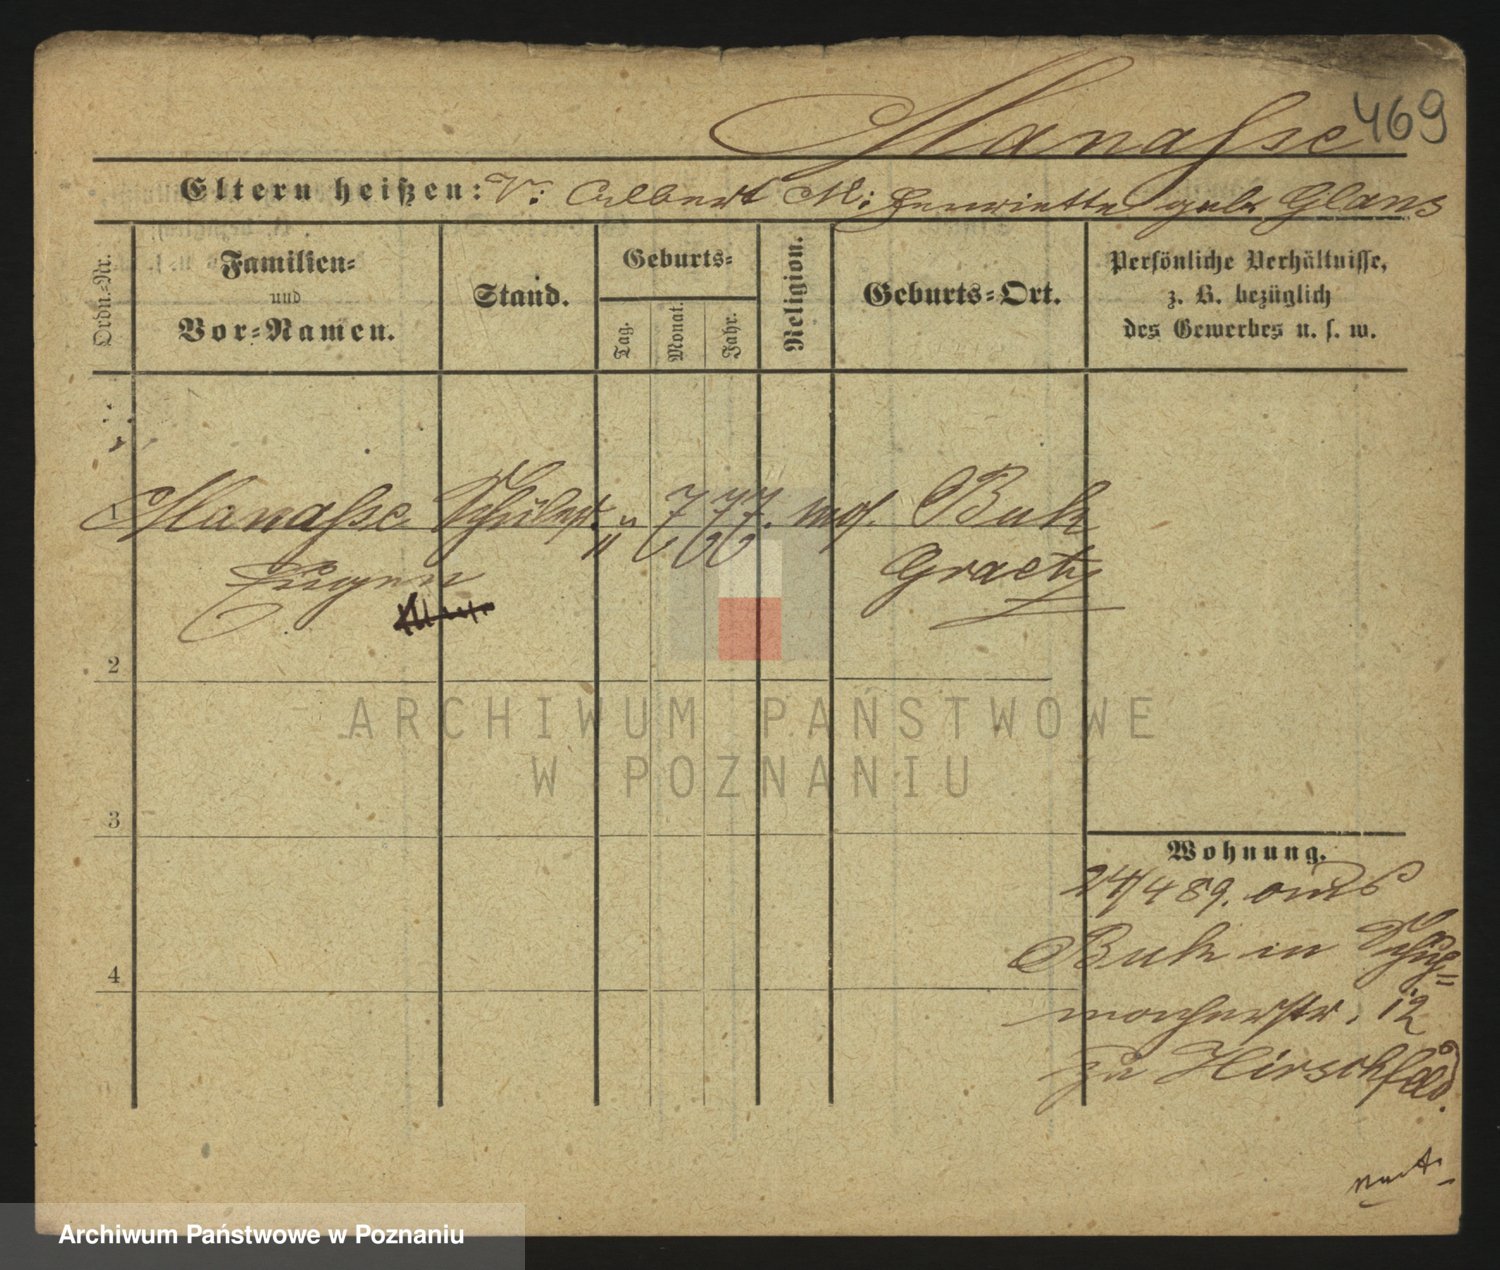 469
Manasse
Eltern heißen: V: Albert M: Henriette geb Glans
Ordn.-Nr.
Familien-
und
Vor-Namen.
Stand.
Geburts-
Tag.
Monat.
Jahr.
Religion.
Geburts-Ort.
Persönliche Verhältnisse,
z. B. bezüglich
des Gewerbes u. s. w.
1 Manasse Schüler. " 7 77. mos. Buk
Eugen Graetz
2
3
4
Wohnung.
24/4 89. aus
Buk in Schuh-
macherstr. 12
zu Hirschfeld.
ARCHIWUM PAŃSTWOWE
W POZNANIU
Archiwum Państwowe w Poznaniu